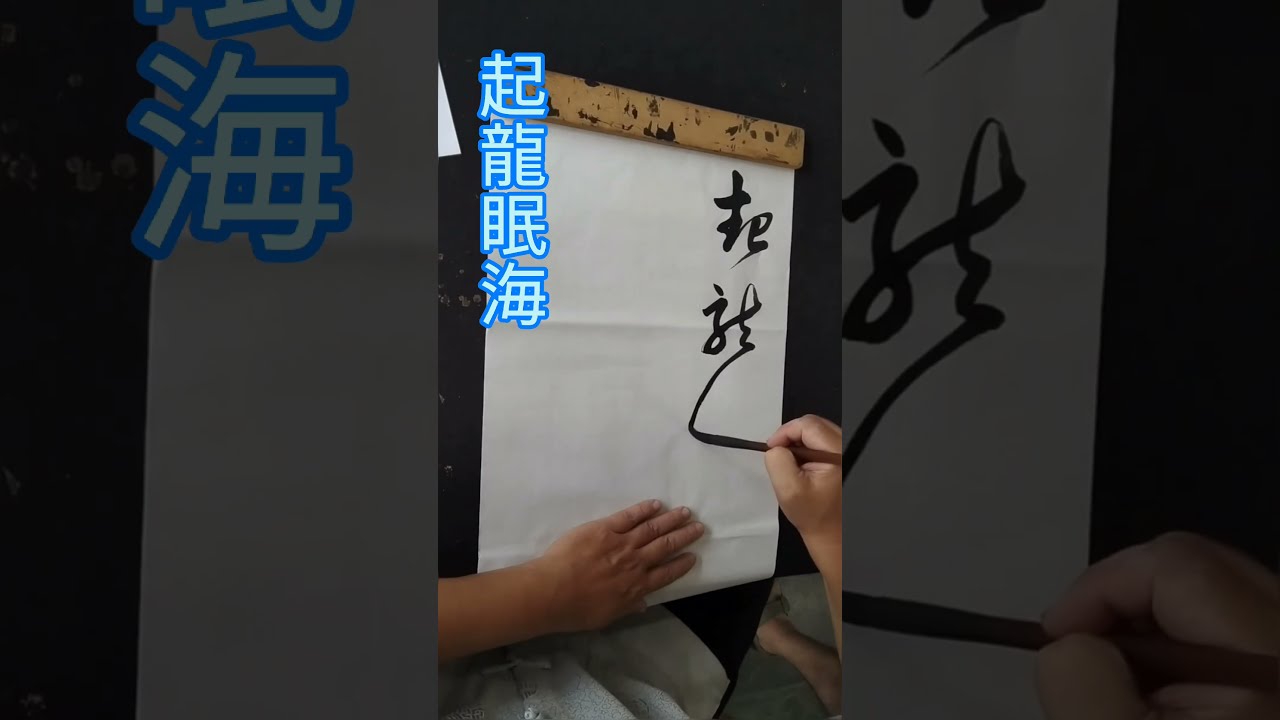 起龍眠海
起龍